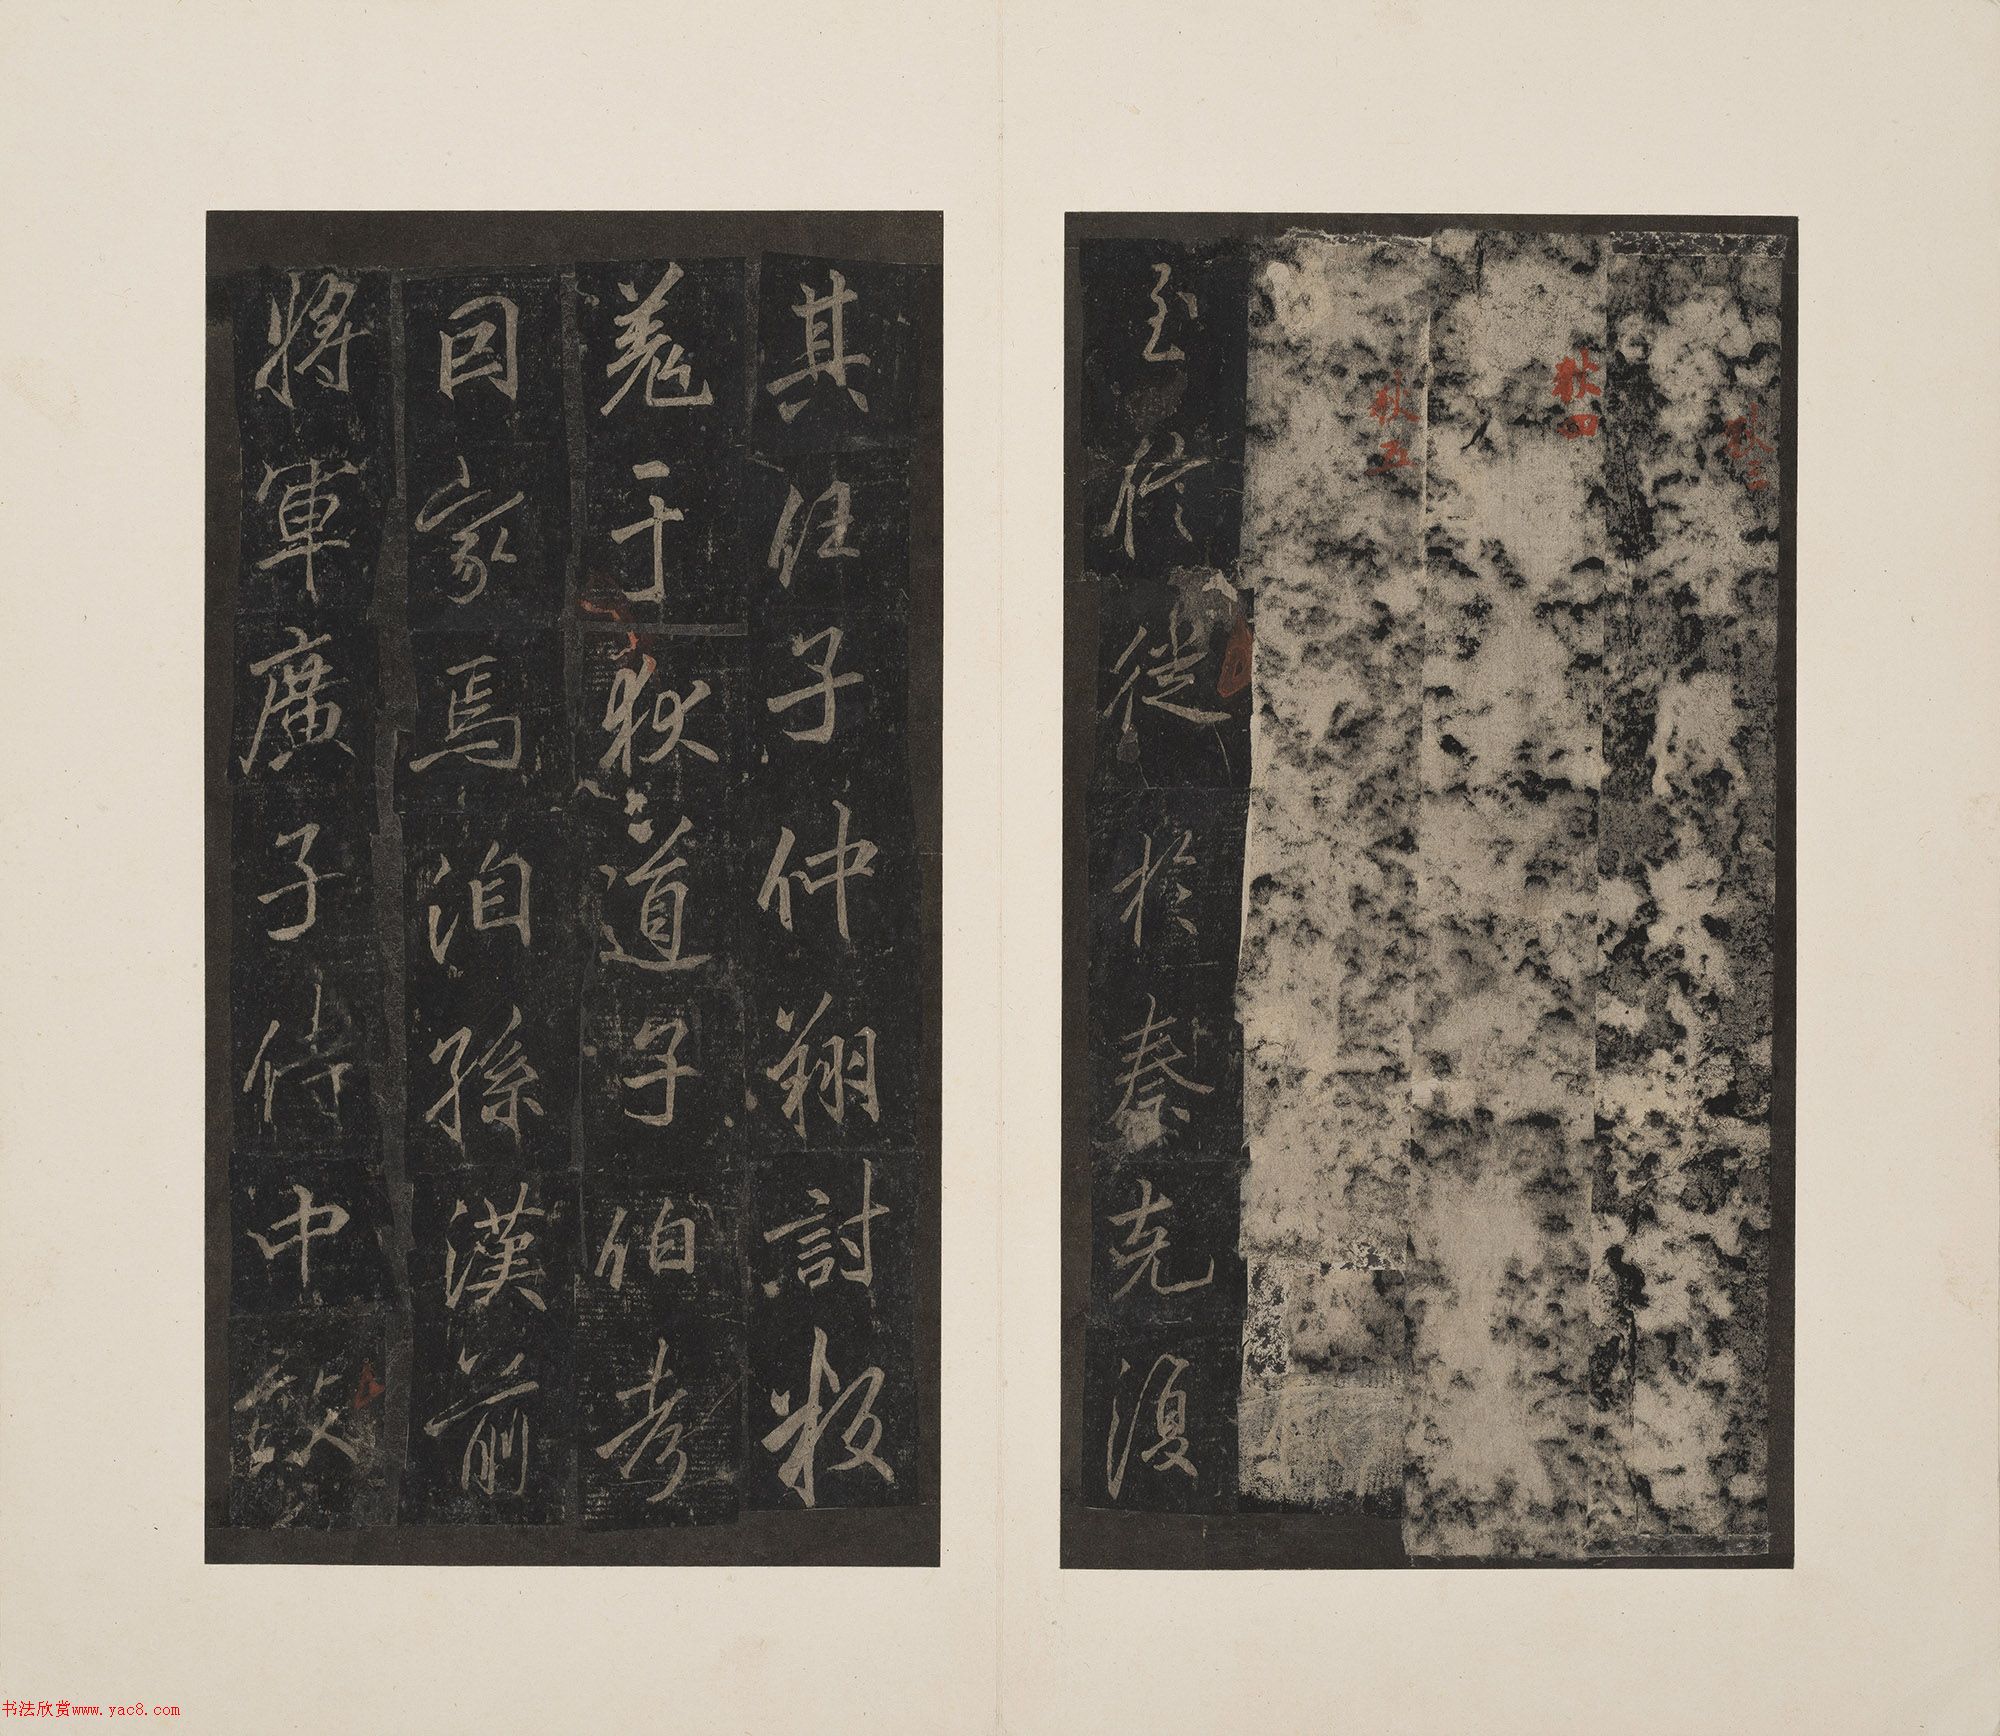 秋三
秋四
秋五
至信徙於秦克復
其任子仲翔討叛
羌于狄道子伯考
因家焉洎孫漢前
將軍廣子侍中敢
书法欣赏www.yac8.com